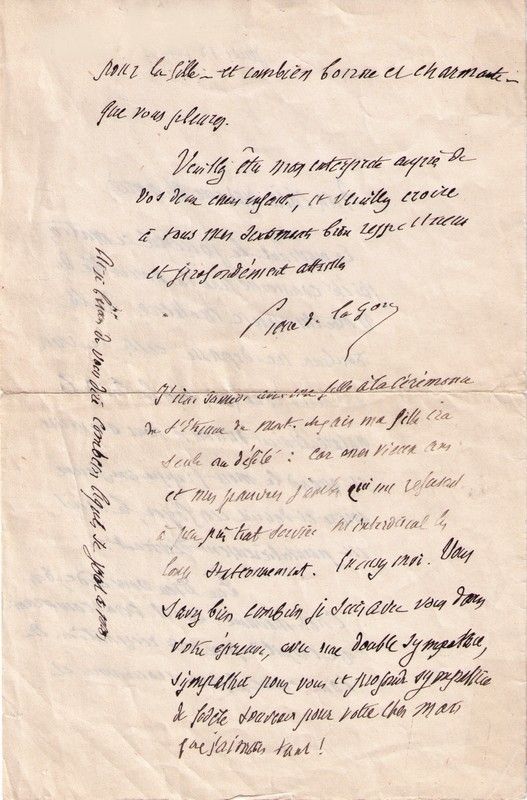 pour la fille – et combien bonne et charmante –
que vous pleurez.
Veuillez être mon interprète auprès de
vos deux chers enfants, et veuillez croire
à tous mes sentiments bien respectueux
et profondément attristés
Pierre de la Gorce
J'irai samedi avec ma fille à la cérémonie
de St Etienne du mont. Mais ma fille ira
seule au défilé : car mes vieux ans
et mes pauvres jambes qui me refusent
à peu près tout service m'interdisent les
longs stationnement. Excusez moi. Vous
savez bien combien je suis avec vous dans
votre épreuve, avec une double sympathie,
sympathie pour vous et profonde sympathie
de fidèle souvenir pour votre cher mari
que j'aimais tant !
Ai-je besoin de vous dire combien Agnès se joint à moi